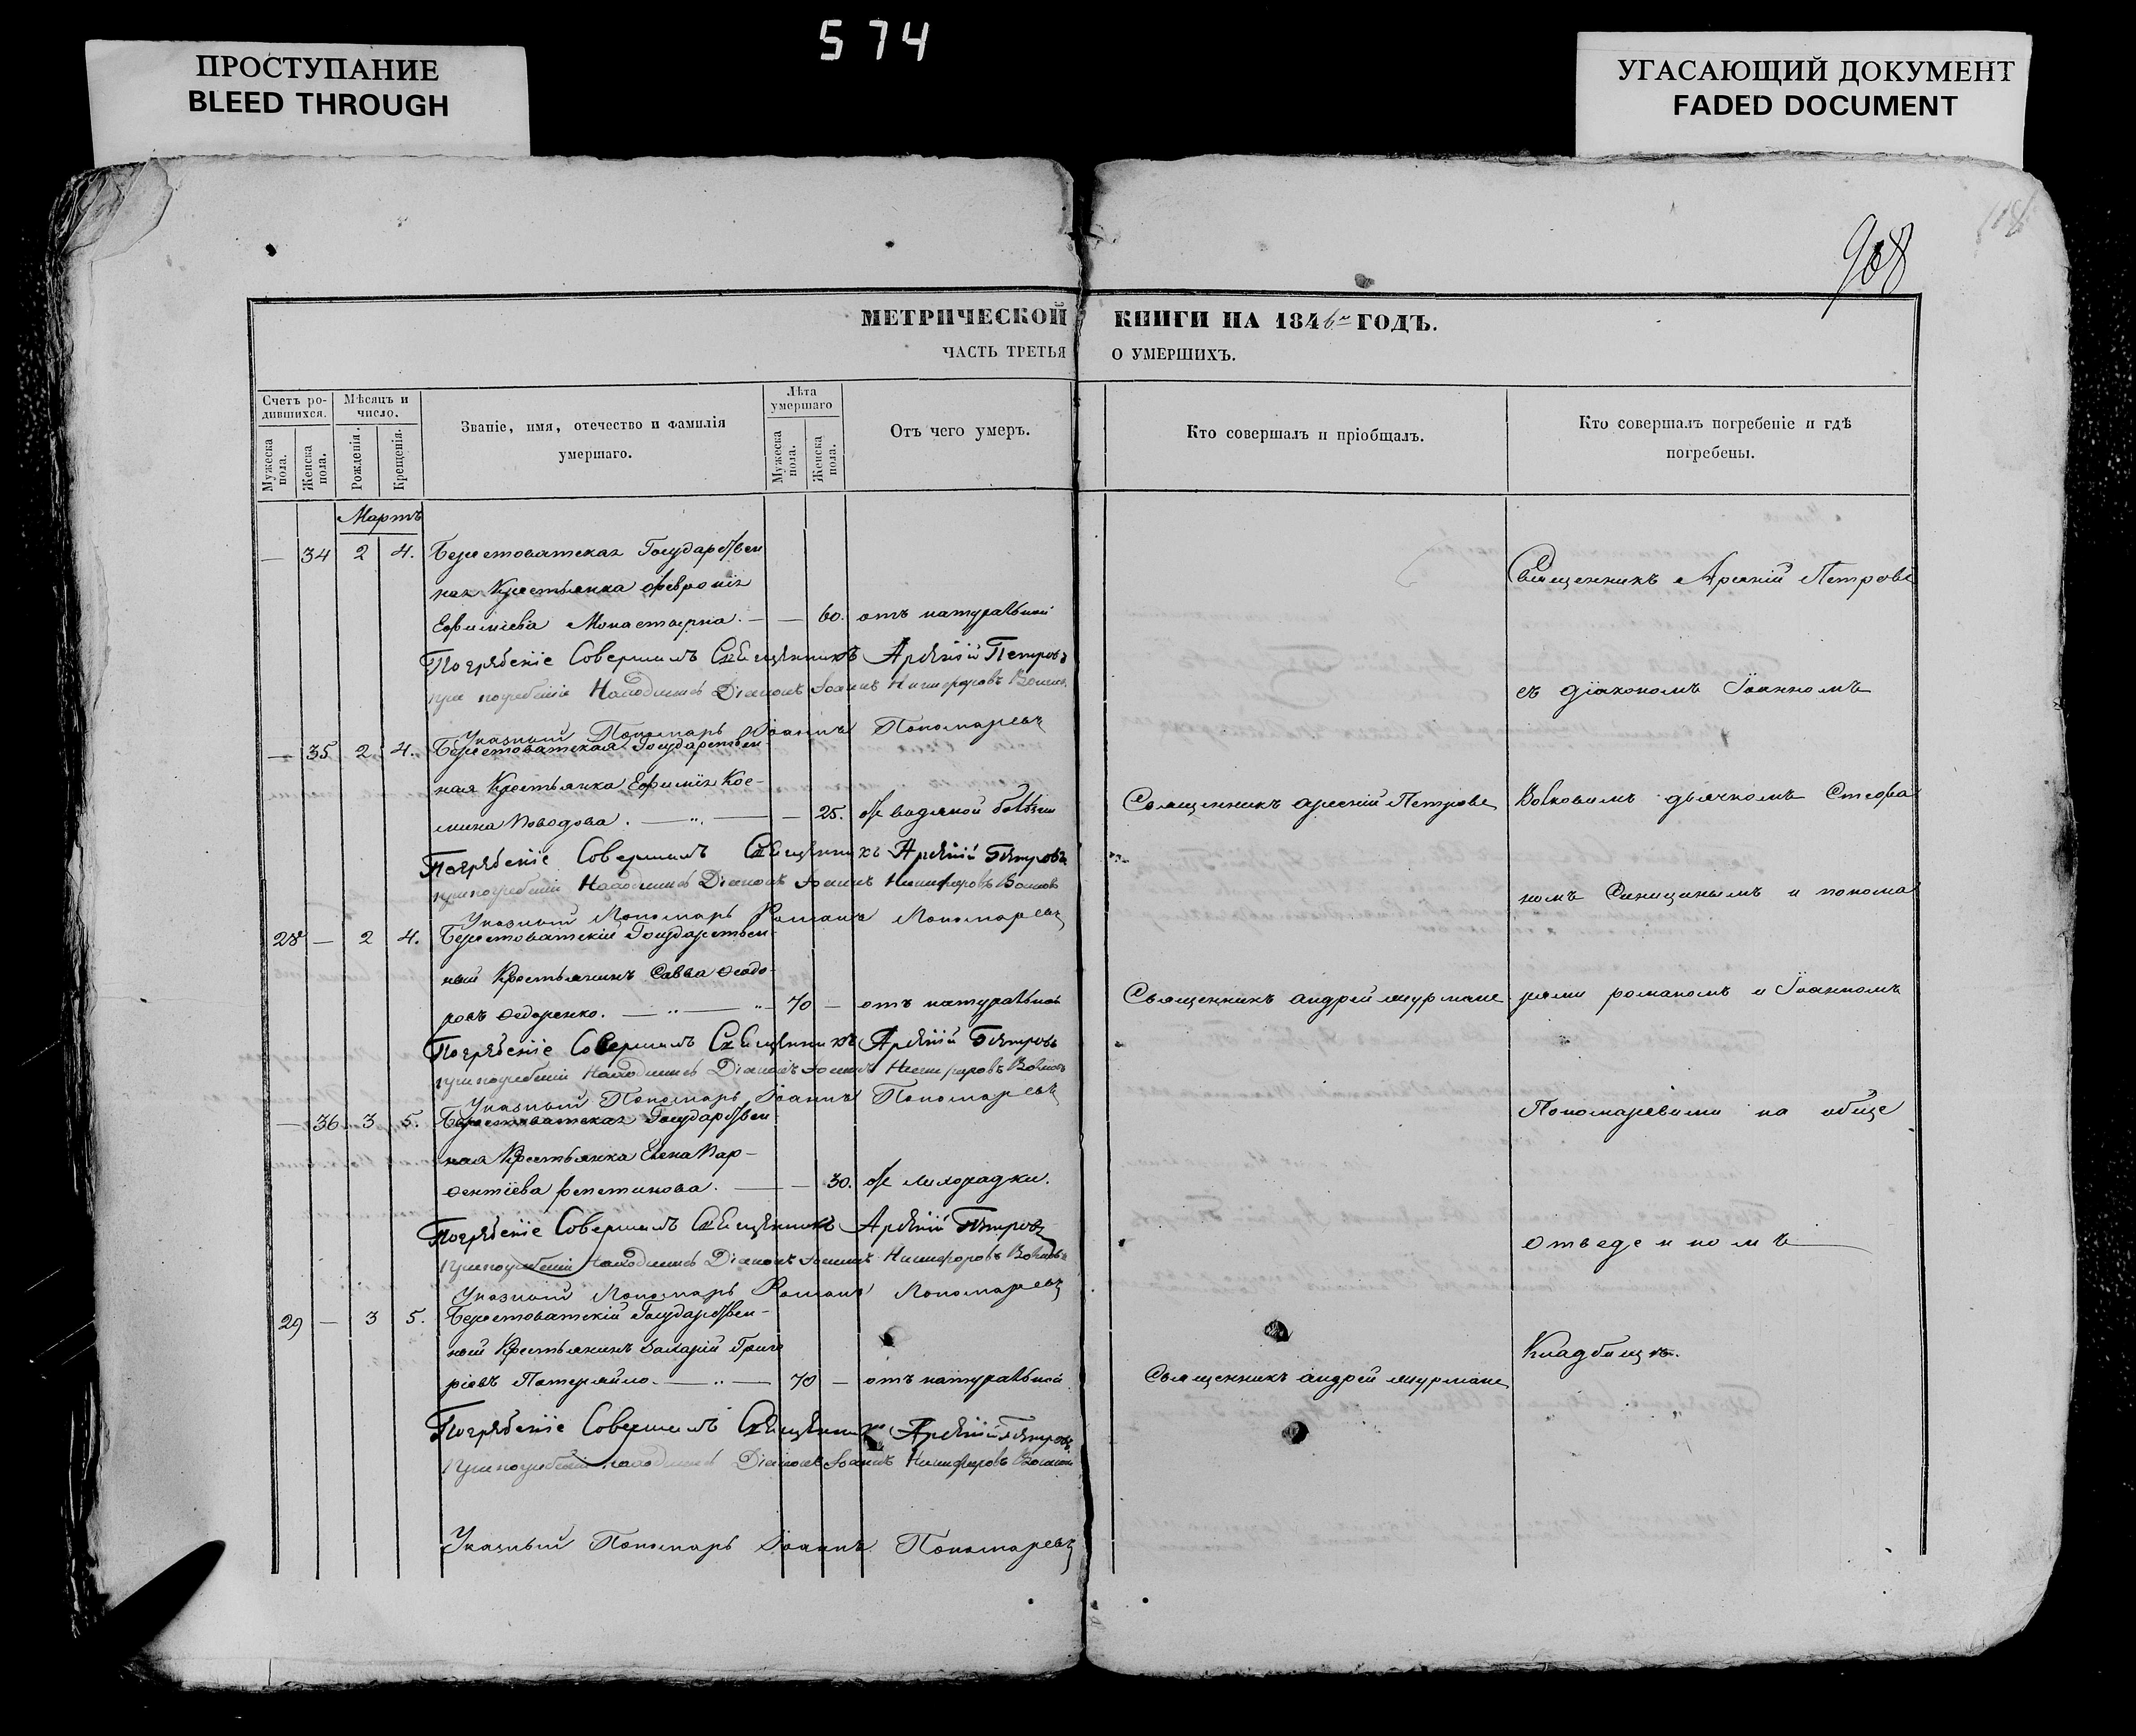 574
ПРОСТУПАНИЕ
BLEED THROUGH
УГАСАЮЩИЙ ДОКУМЕНТ
FADED DOCUMENT
908
118
МЕТРИЧЕСКОЙ КНИГИ НА 1846 ГОДЪ.
ЧАСТЬ ТРЕТЬЯ О УМЕРШИХЪ.
Счетъ ро-
дившихся.
Мужеска пола.
Женска пола.
Мѣсяцъ и
число.
Рожденія.
Крещенія.
Званіе, имя, отечество и фамилія
умершаго.
Лѣта
умершаго
Мужеска пола.
Женска пола.
Отъ чего умеръ.
Кто совершалъ и пріобщалъ.
Кто совершалъ погребеніе и гдѣ
погребены.
Мартъ
— 34 2 4. Берестоватская Государствен
ная Крестьянка Февронія
Ефиміева — 60. отъ натуральной
Погребеніе Совершилъ Священникъ Арсеній Петровъ
при погребеніи Находились Діаконъ Іоаннъ Никифоровъ
Указный Пономарь Іоаннъ Пономаревъ
— 35 2 4. Берестоватская Государствен
ная Крестьянка Ефимія Кос-
мина — 25. водяной болѣзни
Погребеніе Совершилъ Священникъ Арсеній Петровъ
при погребеніи Находились Діаконъ Іоаннъ Никифоровъ Волковъ
Указный Пономарь Романъ Пономаревъ
28 — 2 4. Берестоватскій Государствен
ный Крестьянинъ Савва Ѳеодо-
ровъ Ѳедоренко. 70 — отъ натуральной
Погребеніе Совершилъ Священникъ Арсеній Петровъ
при погребеніи Находились Діаконъ Іоаннъ Никифоровъ Волковъ
Указный Пономарь Іоаннъ Пономаревъ
— 36 3 5. Берестоватская Государствен
ная Крестьянка Елена Пар-
ѳентіева — 30. лихорадки.
Погребеніе Совершилъ Священникъ Арсеній Петровъ
при погребеніи Находились Діаконъ Іоаннъ Никифоровъ Волковъ
Указный Пономарь Романъ Пономаревъ
29 — 3 5. Берестоватскій Государствен-
ный Крестьянинъ Захарій Григо
ріевъ 70 — отъ натуральной
Погребеніе Совершилъ Священникъ Арсеній Петровъ
при погребеніи Находились Діаконъ Іоаннъ Никифоровъ
Указный Пономарь Іоаннъ Пономаревъ
Священникъ арсеній Петровъ
Священникъ андрей
Священникъ андрей
Священникъ Арсеній Петровъ
съ діакономъ Іоанномъ
Волковымъ дьячкомъ Стефа
номъ Синицинымъ и понома
рями романомъ и Іоанномъ
Пономаревыми на обще
отведенномъ
Кладбищѣ.